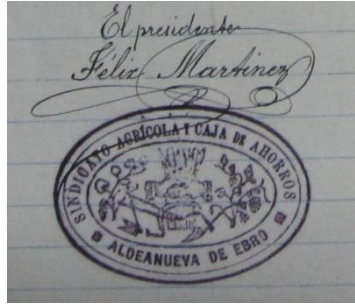 El presidente
Félix Martinez
SINDICATO AGRÍCOLA Y CAJA DE AHORROS
ALDEANUEVA DE EBRO